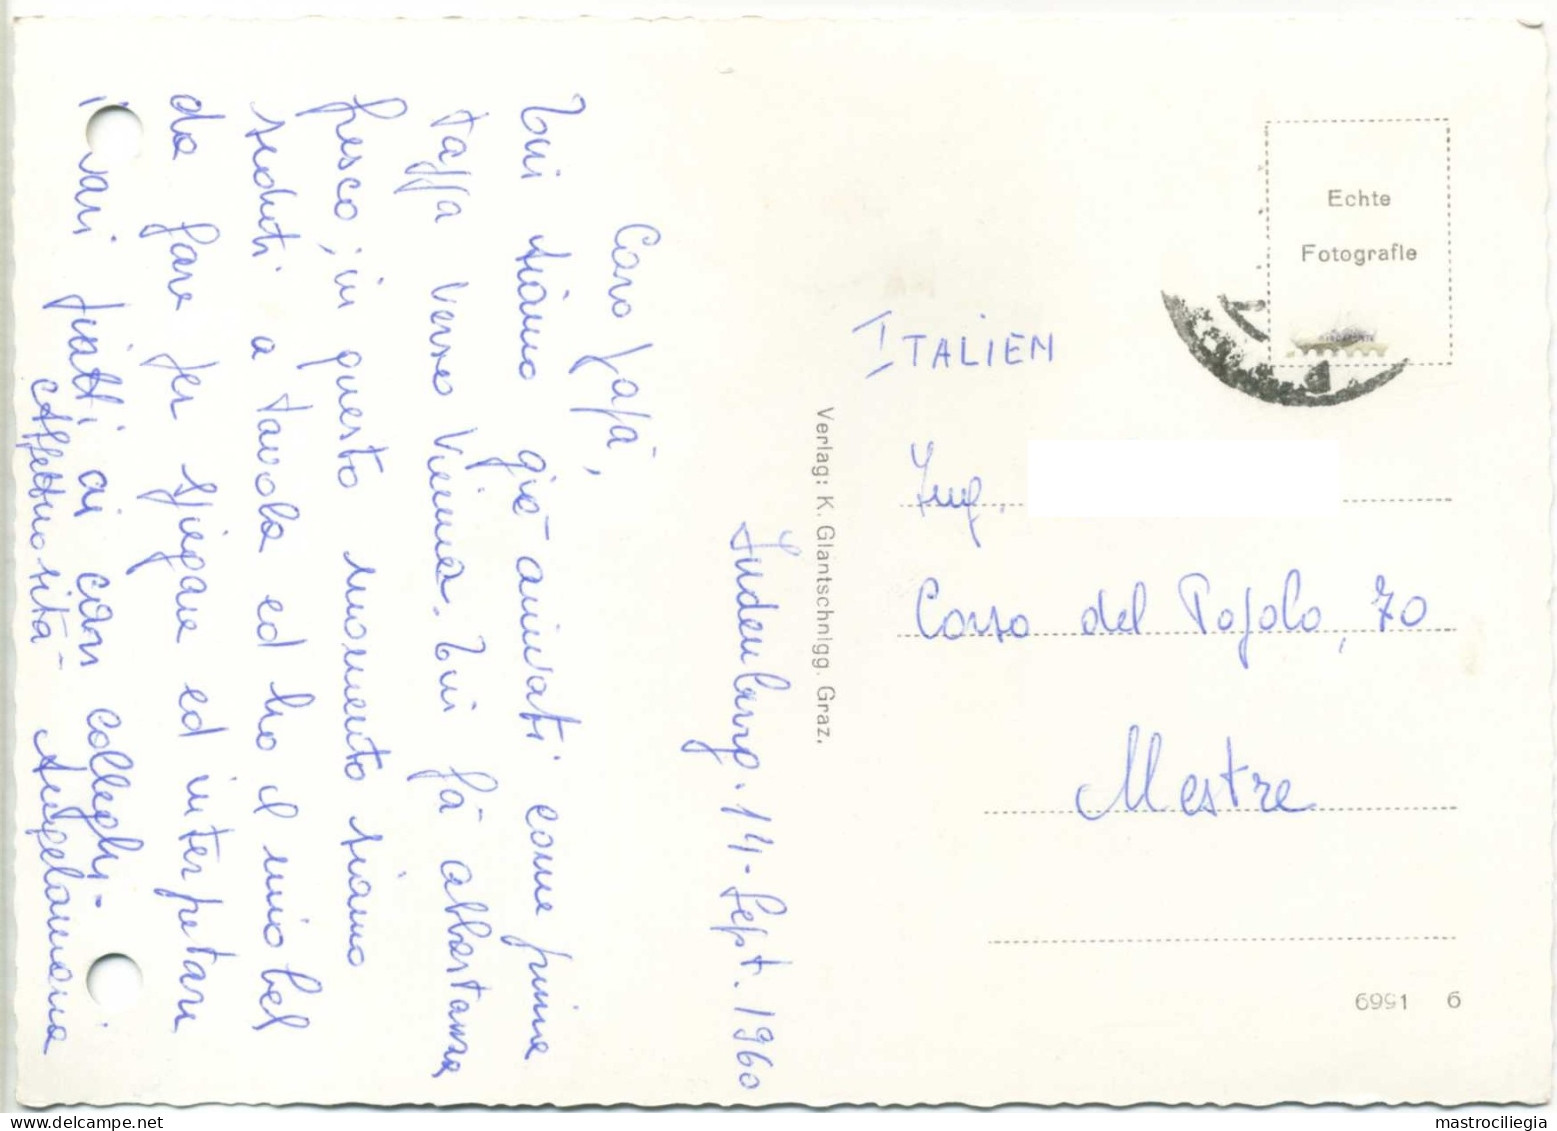 Judenburg. 14-Sept. 1960
Caro Papà,
Qui siamo già arrivati come prima
tappa verso Vienna. Qui fà abbastanza
fresco, in questo momento siamo
seduti a tavola ed ho il mio bel
da fare per spiegare ed interpretare
i vari piatti ai cari colleghi-
Affettuosità-
Verlag: K. Glantschnigg. Graz.
Echte
Fotografie
ITALIEN
Ing.
Corso del Popolo, 70
Mestre
6991 6
mastrociliegia